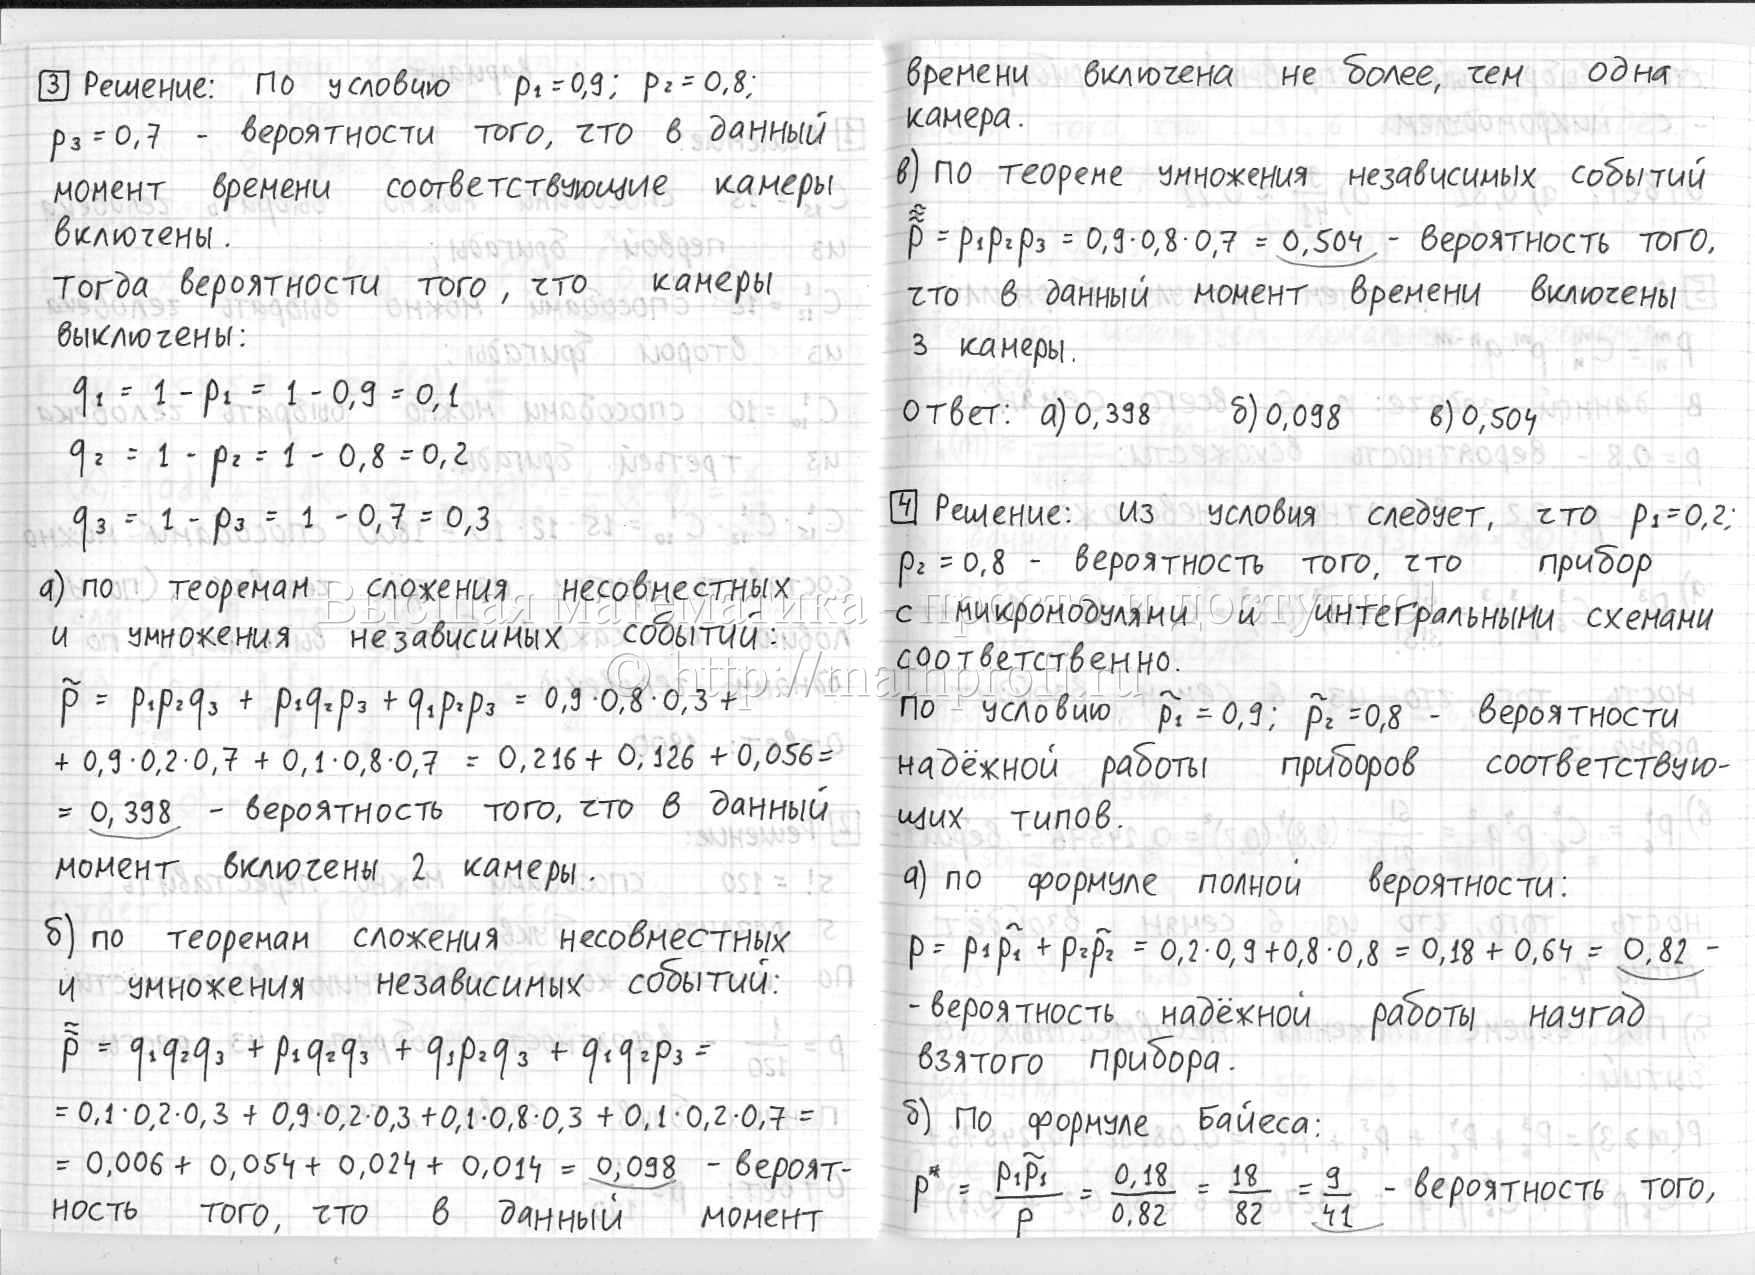 3 Решение: По условию p₁=0,9; p₂=0,8;
p₃=0,7 - вероятности того, что в данный
момент времени соответствующие камеры
включены.
Тогда вероятности того, что камеры
выключены:
q₁ = 1 - p₁ = 1 - 0,9 = 0,1
q₂ = 1 - p₂ = 1 - 0,8 = 0,2
q₃ = 1 - p₃ = 1 - 0,7 = 0,3
а) по теоремам сложения несовместных
и умножения независимых событий:
p̃ = p₁p₂q₃ + p₁q₂p₃ + q₁p₂p₃ = 0,9·0,8·0,3 +
+ 0,9·0,2·0,7 + 0,1·0,8·0,7 = 0,216 + 0,126 + 0,056 =
= 0,398 - вероятность того, что в данный
момент включены 2 камеры.
б) по теоремам сложения несовместных
и умножения независимых событий:
p̃̃ = q₁q₂q₃ + p₁q₂q₃ + q₁p₂q₃ + q₁q₂p₃ =
= 0,1·0,2·0,3 + 0,9·0,2·0,3 + 0,1·0,8·0,3 + 0,1·0,2·0,7 =
= 0,006 + 0,054 + 0,024 + 0,014 = 0,098 - вероят-
ность того, что в данный момент
времени включена не более, чем одна
камера.
в) По теореме умножения независимых событий
p̃̃̃ = p₁p₂p₃ = 0,9·0,8·0,7 = 0,504 - вероятность того,
что в данный момент времени включены
3 камеры.
Ответ: а) 0,398 б) 0,098 в) 0,504
4 Решение: Из условия следует, что p₁=0,2;
p₂=0,8 - вероятность того, что прибор
с микромодулями и интегральными схемами
соответственно.
По условию p̃₁=0,9; p̃₂=0,8 - вероятности
надёжной работы приборов соответствую-
щих типов.
а) по формуле полной вероятности:
p = p₁p̃₁ + p₂p̃₂ = 0,2·0,9 + 0,8·0,8 = 0,18 + 0,64 = 0,82 -
- вероятность надёжной работы наугад
взятого прибора.
б) По формуле Байеса:
p* = p₁p̃₁/p = 0,18/0,82 = 18/82 = 9/41 - вероятность того,
Высшая математика – просто и доступно!
© http://mathprofi.ru